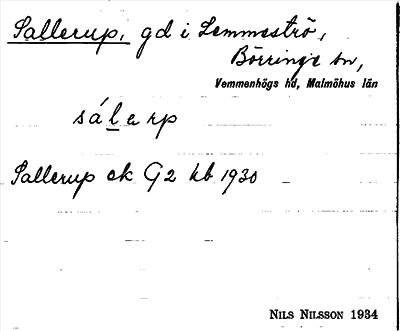 Sallerup, gd i Lemmeströ,
Börringe sn,
Vemmenhögs hd, Malmöhus län
sálerp
Sallerup ek G2 kb 1930
NILS NILSSON 1934